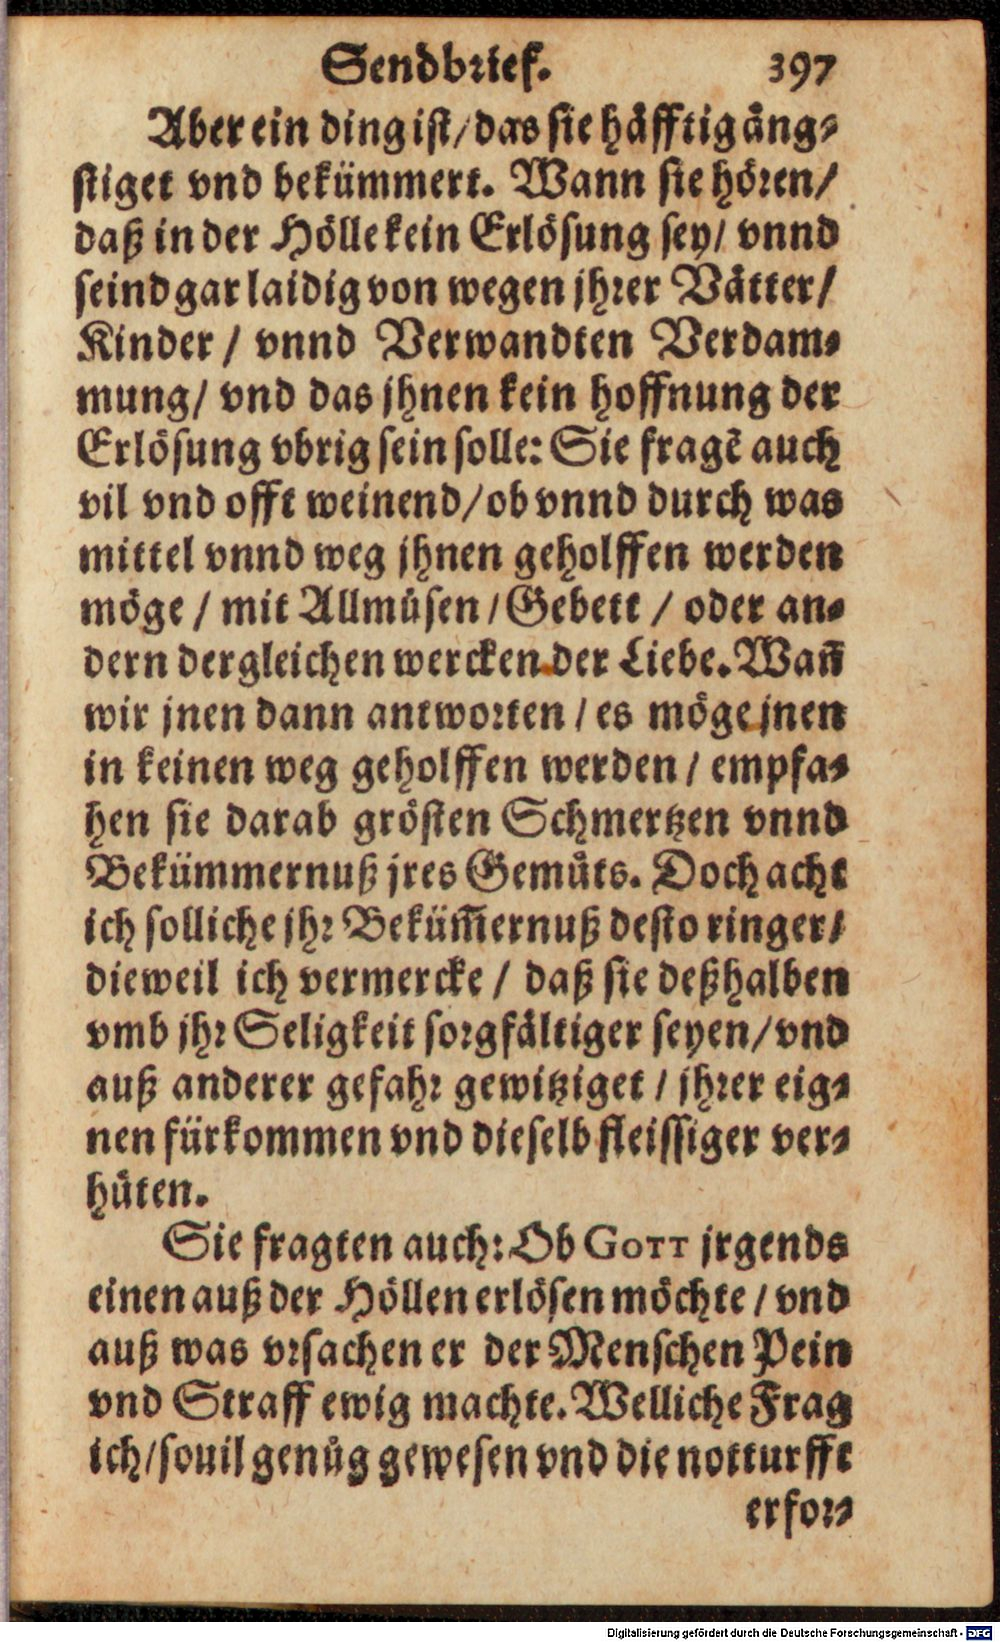 Sendbrief. 397
Aber ein ding ist/ das sie häfftig äng-
stiget vnd bekümmert. Wann sie hören/
daß in der Hölle kein Erlösung sey/ vnnd
seind gar laidig von wegen jhrer Vätter/
Kinder / vnnd Verwandten Verdam-
mung/ vnd das jhnen kein hoffnung der
Erlösung vbrig sein solle: Sie fragẽ auch
vil vnd offt weinend/ ob vnnd durch was
mittel vnnd weg jhnen geholffen werden
möge / mit Allmůsen / Gebett / oder an-
dern dergleichen wercken der Liebe. Wañ
wir jnen dann antworten / es möge jnen
in keinen weg geholffen werden / empfa-
hen sie darab grösten Schmertzen vnnd
Bekümmernuß jres Gemůts. Doch acht
ich solliche jhr Beküm̃ernuß desto ringer/
dieweil ich vermercke / daß sie deßhalben
vmb jhr Seligkeit sorgfältiger seyen/ vnd
auß anderer gefahr gewitziget / jhrer eig-
nen fürkommen vnd dieselb fleissiger ver-
hůten.
Sie fragten auch: Ob GOTT jrgends
einen auß der Höllen erlösen möchte / vnd
auß was vrsachen er der Menschen Pein
vnd Straff ewig machte. Welliche Frag
ich/ souil genůg gewesen vnd die notturfft
erfor-
Digitalisierung gefördert durch die Deutsche Forschungsgemeinschaft - DFG